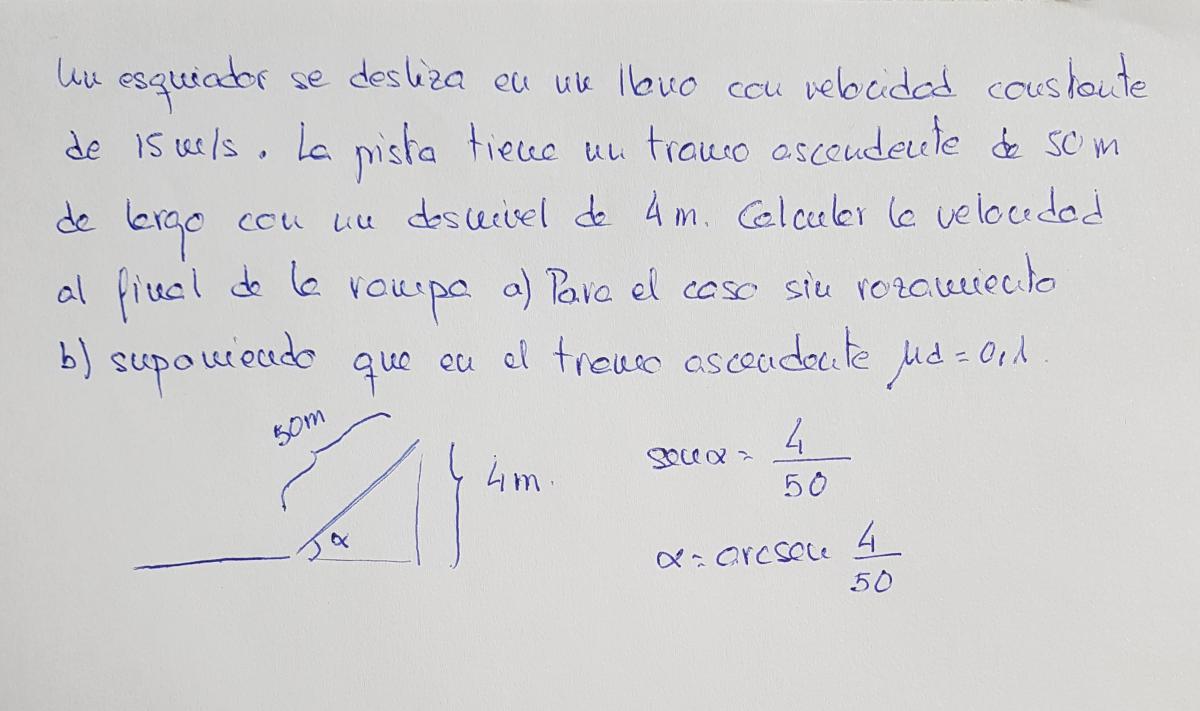 Un esquiador se desliza en un llano con velocidad constante
de 15 m/s. La pista tiene un tramo ascendente de 50 m
de largo con un desnivel de 4 m. Calcular la velocidad
al final de la rampa a) Para el caso sin rozamiento
b) suponiendo que en el tramo ascendente μd = 0,1.
50m
4m.
α
sen α = 4/50
α = arcsen 4/50